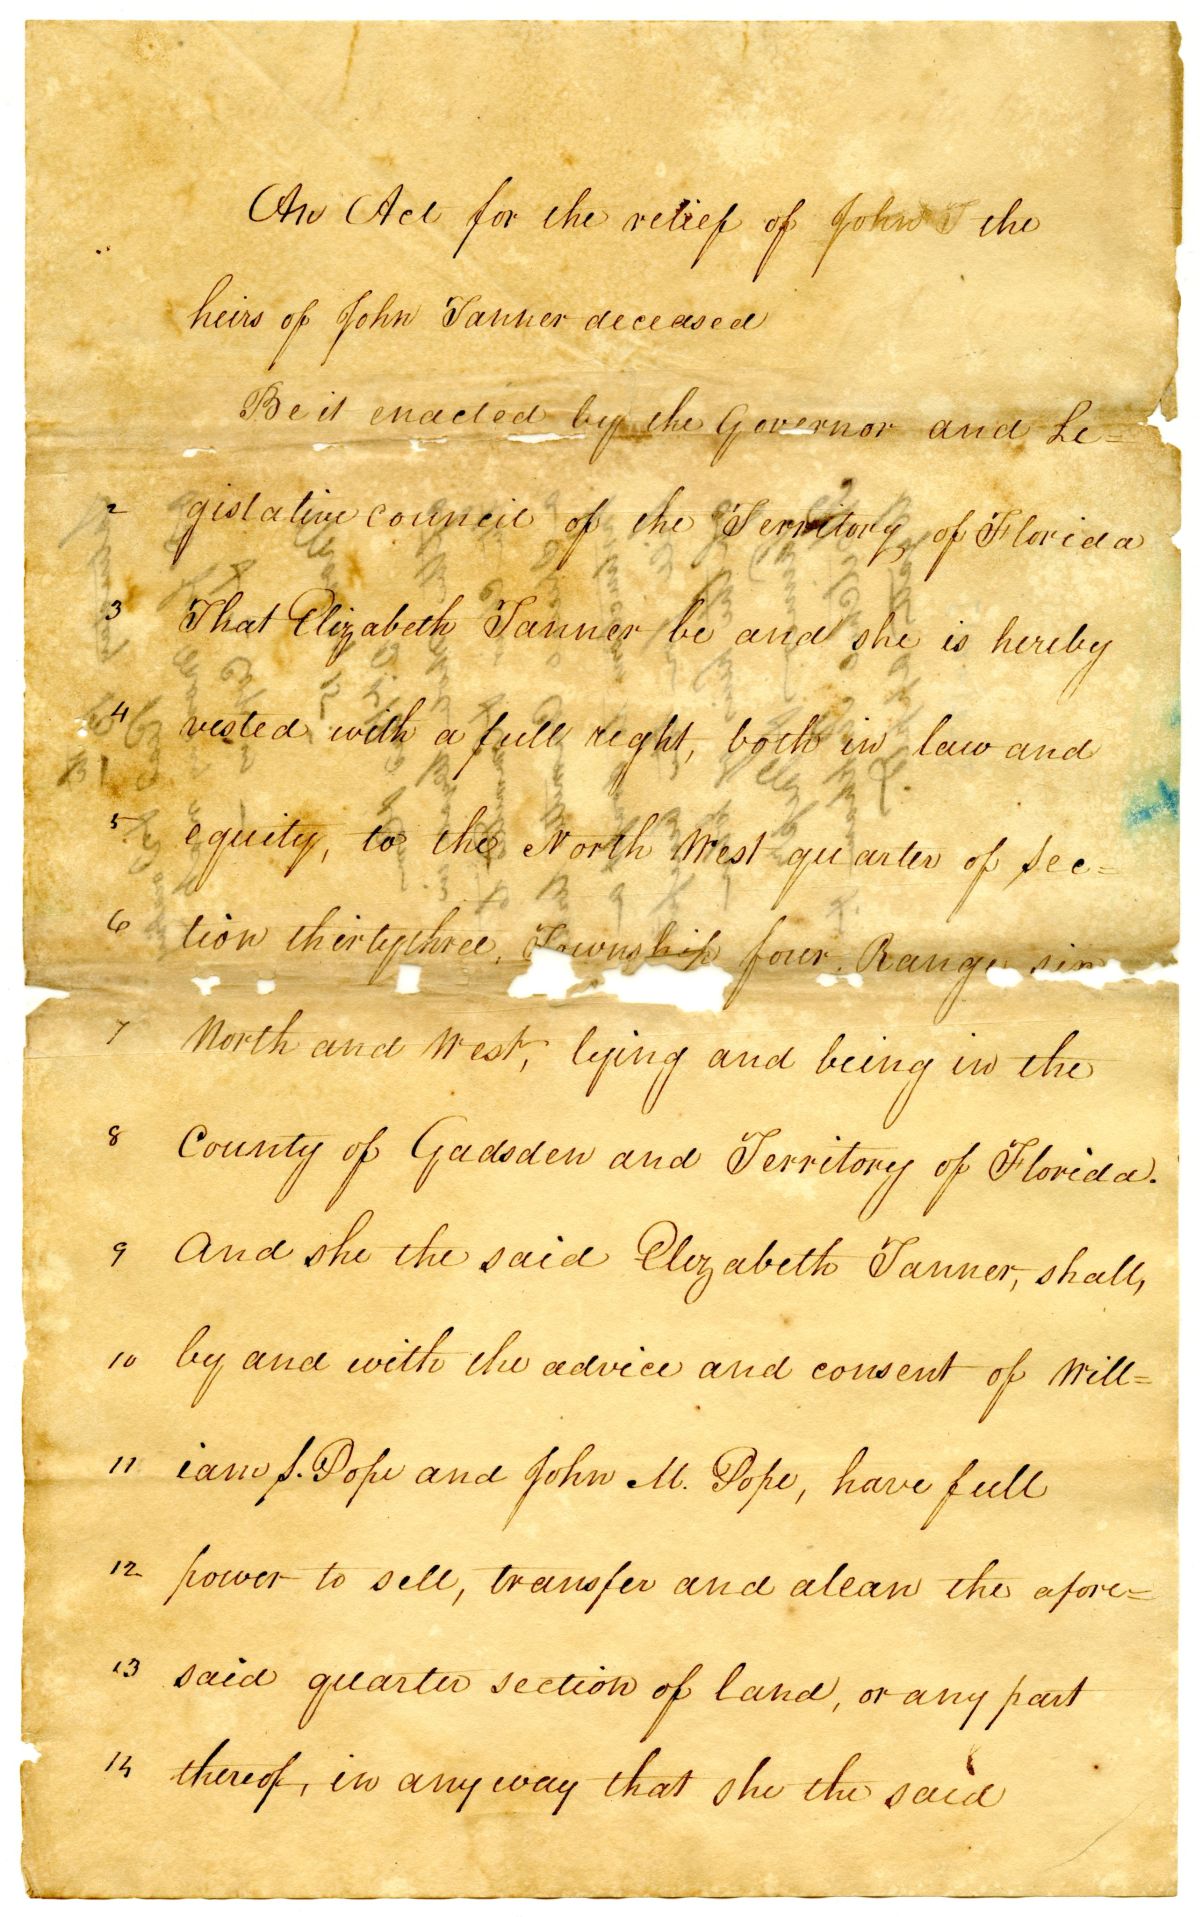 An Act for the relief of John T the
heirs of John Tanner deceased
Be it enacted by the Governor and Le=
2 gislative council of the Territory of Florida
3 That Elizabeth Tanner be and she is hereby
4 vested with a full right, both in law and
5 equity, to the North West quarter of Sec=
6 tion thirtythree, Township four. Range six
7 North and West, lying and being in the
8 County of Gadsden and Territory of Florida.
9 And she the said Elizabeth Tanner, shall,
10 by and with the advice and consent of Will=
11 iam S. Pope and John M. Pope, have full
12 power to sell, transfer and alean the afore=
13 said quarter section of land, or any part
14 thereof, in any way that she the said